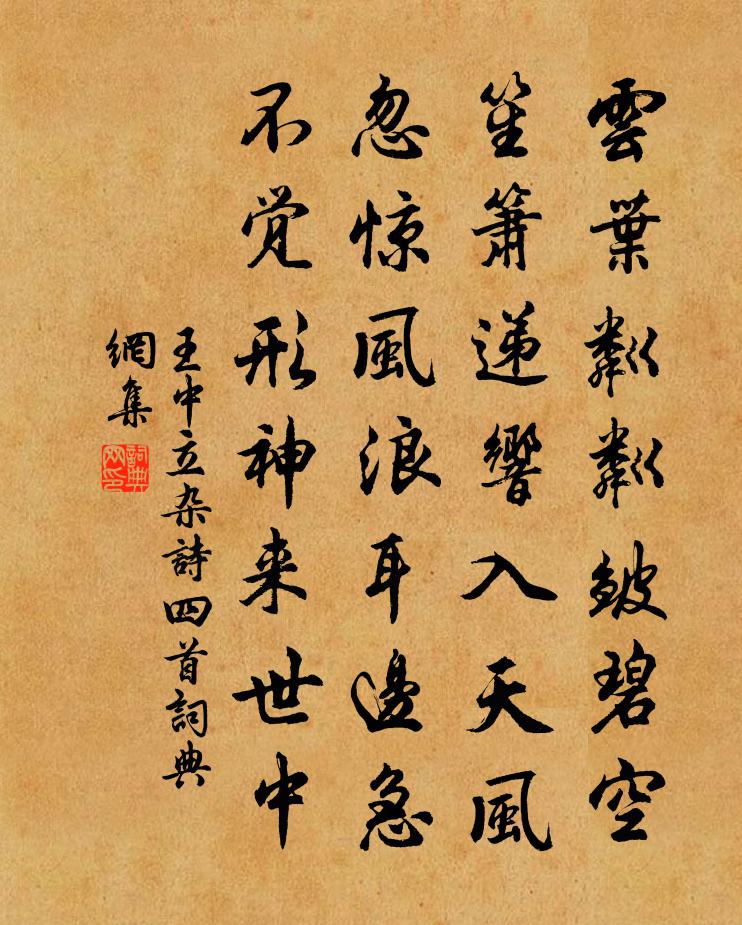 雲葉粼粼皱碧空
笙簫递響入天風
忽惊風浪耳邊急
不觉形神来世中
王中立杂詩四首詞典
網集
詞典
网印